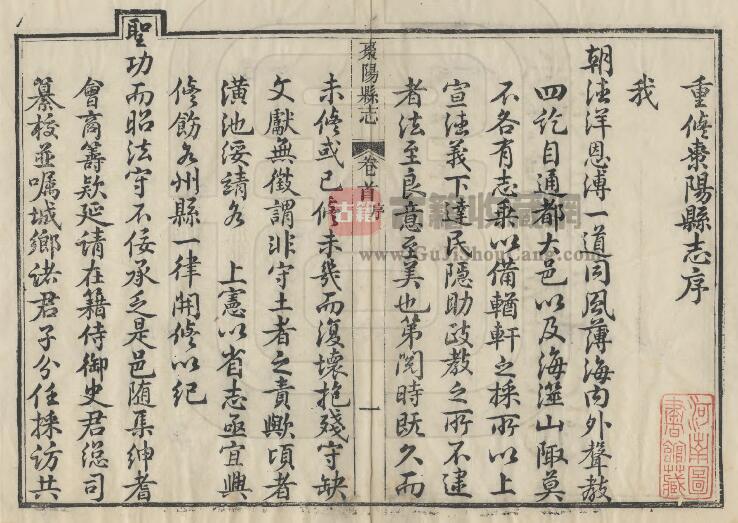 重修棗陽縣志序
我
朝法洋恩溥一道同風薄海內外聲教
四訖自通都大邑以及海澨山陬莫
不各有志乘以備輶軒之採所以上
宣法義下達民隱助政教之所不逮
者法至良意至美也第閱時既久而
棗陽縣志 卷首 序 一
未修或已修未幾而復壞抱殘守缺
文獻無徵謂非守土者之責歟頃者
潢池綏靖各 上憲以省志亟宜興
修飭各州縣一律開修以紀
聖功而昭法守不佞承乏是邑随集紳耆
會商籌欵延請在籍侍御史君總司
纂校並囑城鄉諸君子分任採访共
河南圖書館藏
古籍
www.GuJiShouCang.com